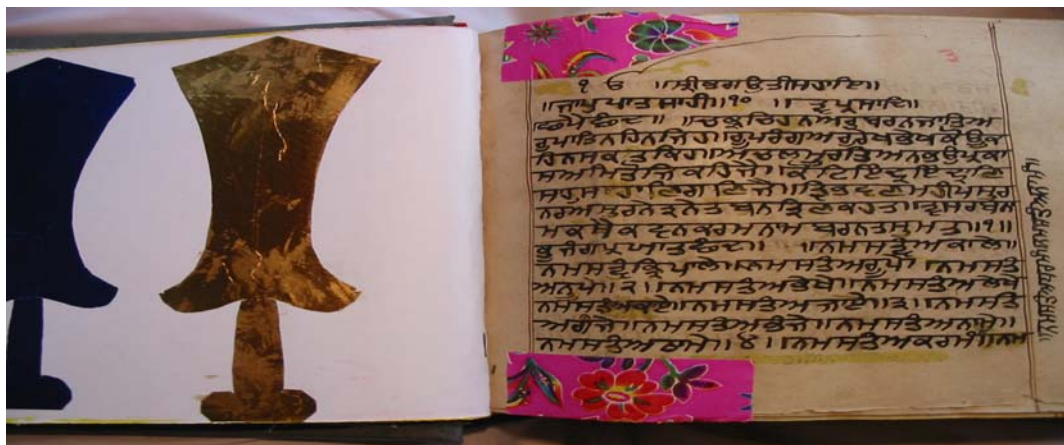 ੧ ਓ ॥ਸ੍ਰੀਭਗਉਤੀਸਹਾਇ॥
॥ਜਾਪੁਪਾਤਸਾਹੀ॥੧੦ ॥ਤ੍ਵਪ੍ਰਸਾਦਿ॥
ਛਪੈਛੰਦ॥ ॥ਚਕ੍ਰਚਿਹਨਅਰੁਬਰਨਜਾਤਿਅ
ਰੁਪਾਤਿਨਹਿਨਜਿਹ॥ਰੂਪਰੰਗਅਰੁਰੇਖਭੇਖਕੋਊਕ
ਹਿਨਸਕਤਕਿਹ॥ਅਚਲਮੂਰਤਿਅਨਭਉਪ੍ਰਕਾ
ਸਅਮਿਤੋਜਿਕਹਿਜੈ॥ਕੋਟਿਇੰਦ੍ਰਇੰਦ੍ਰਾਣਿ
ਸਾਹੁਸਾਹਾਣਿਗਣਿਜੈ॥ਤ੍ਰਿਭਵਣਮਹੀਪਸੁਰ
ਨਰਅਸੁਰਨੇਤਨੇਤਬਨਤ੍ਰਿਣਕਹਤ॥ਤ੍ਵਸਰਬਨਾ
ਮਕਥੈਕਵਨਕਰਮਨਾਮ ਬਰਨਤਸੁਮਤ॥੧॥
ਭੁਜੰਗਪ੍ਰਯਾਤਛੰਦ॥ ॥ਨਮਸਤ੍ਵੰਅਕਾਲੇ॥
ਨਮਸਤ੍ਵੰਕ੍ਰਿਪਾਲੇ॥ਨਮਸਤੰਅਰੂਪੇ॥ਨਮਸਤੰ
ਅਨੂਪੇ॥੨॥ਨਮਸਤੰਅਭੇਖੇ॥ਨਮਸਤੰਅਲੇਖੇ
ਨਮਸਤੰਅਕਾਏ॥ਨਮਸਤੰਅਜਾਏ॥੩॥ਨਮਸਤੰ
ਅਗੰਜੇ॥ਨਮਸਤੰਅਭੰਜੇ॥ਨਮਸਤੰਅਨਾਮੇ॥
ਨਮਸਤੰਅਠਾਮੇ॥੪॥ਨਮਸਤੰਅਕਰਮੰ॥ਨਮ